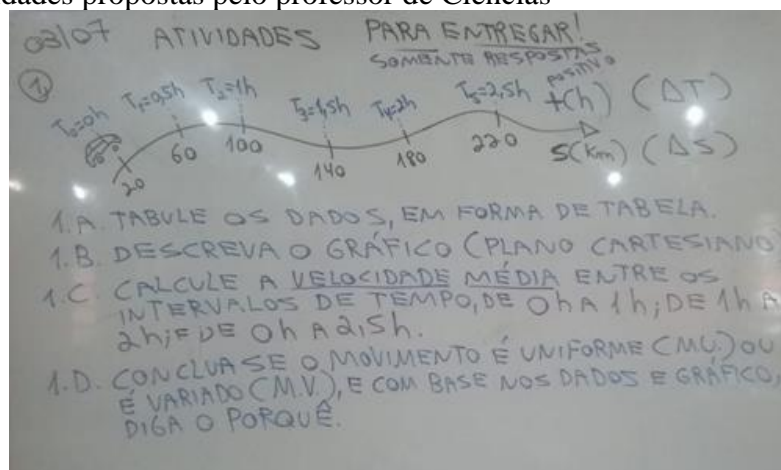 dades propostas pelo professor de Ciências
03/07 ATIVIDADES PARA ENTREGAR!
SOMENTE RESPOSTAS
1
T₀=0h T₁=0,5h T₂=1h T₃=1,5h T₄=2h T₅=2,5h POSITIVO t(h) (ΔT)
20 60 100 140 180 220 S(Km) (ΔS)
1.A. TABULE OS DADOS, EM FORMA DE TABELA.
1.B. DESCREVA O GRÁFICO (PLANO CARTESIANO)
1.C. CALCULE A VELOCIDADE MÉDIA ENTRE OS
INTERVALOS DE TEMPO, DE 0h A 1h; DE 1h A
2h; E DE 0h A 2,5h.
1.D. CONCLUA SE O MOVIMENTO É UNIFORME (M.U.) OU
É VARIADO (M.V.), E COM BASE NOS DADOS E GRÁFICO,
DIGA O PORQUÊ.